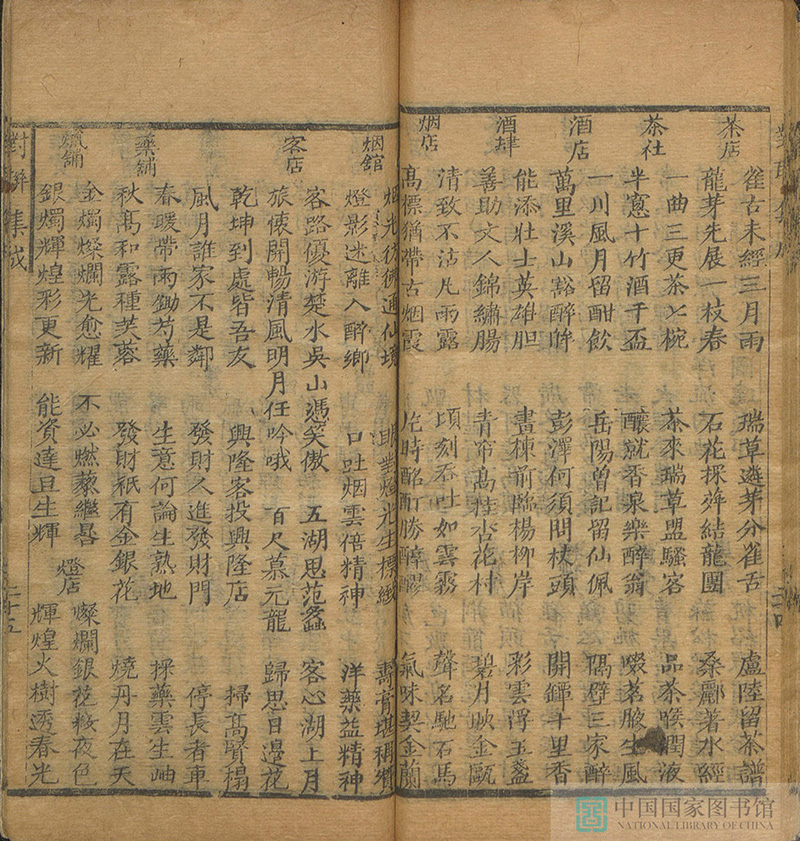 茶店
雀舌未經三月雨 瑞草遴芽分雀舌 盧陸留茶譜
龍芽先展一枝春 石花採蕚結龍團 桑酈著水經
茶社
一曲三更茶七椀 茶來瑞草盟騷客 品茶喉潤液
半窻十竹酒千盃 釀就香泉樂醉翁 啜茗腋生風
酒店
一川風月留酣飲 岳陽曾記留仙佩 隔壁三家醉
萬里溪山豁醉眸 彭澤何須問杖頭 開鐔十里香
酒肆
能添壯士英雄胆 畫棟前臨楊柳岸 彩雲浮玉盞
善助文人錦繡腸 青帘高挂杏花村 碧月映金甌
烟店
清致不沾凡雨露 頃刻吞吐如雲霧 聲名馳石馬
高標猶帶古烟霞 片時酩酊勝醇醪 氣味契金蘭
烟舘
烟光彷彿通仙境 眼對燈光生標緻 壽膏堪稱
燈影迷離入醉鄉 口吐烟雲倍精神 洋藥益精神
客店
客路優游楚水吳山憑笑傲 五湖思范蠡 客心湖上月
旅懷開暢清風明月任吟哦 百尺慕元龍 歸思日邊花
乾坤到處皆吾友 興隆客投興隆店 掃高賢榻
風月誰家不是鄰 發財人進發財門 停長者車
藥舖
春暖帶雨鋤芍藥 生意何論生熟地 採藥雲生岫
秋高和露種芙蓉 發財祇有金銀花 燒丹月在天
蠟舖
金燭燦爛光愈耀 不必燃藜繼晷
銀燭輝煌彩更新 能資達旦生輝
燈店
燦爛銀花敵夜色
輝煌火樹透春光
對聯集成
二十五
中国国家图书馆
NATIONAL LIBRARY OF CHINA